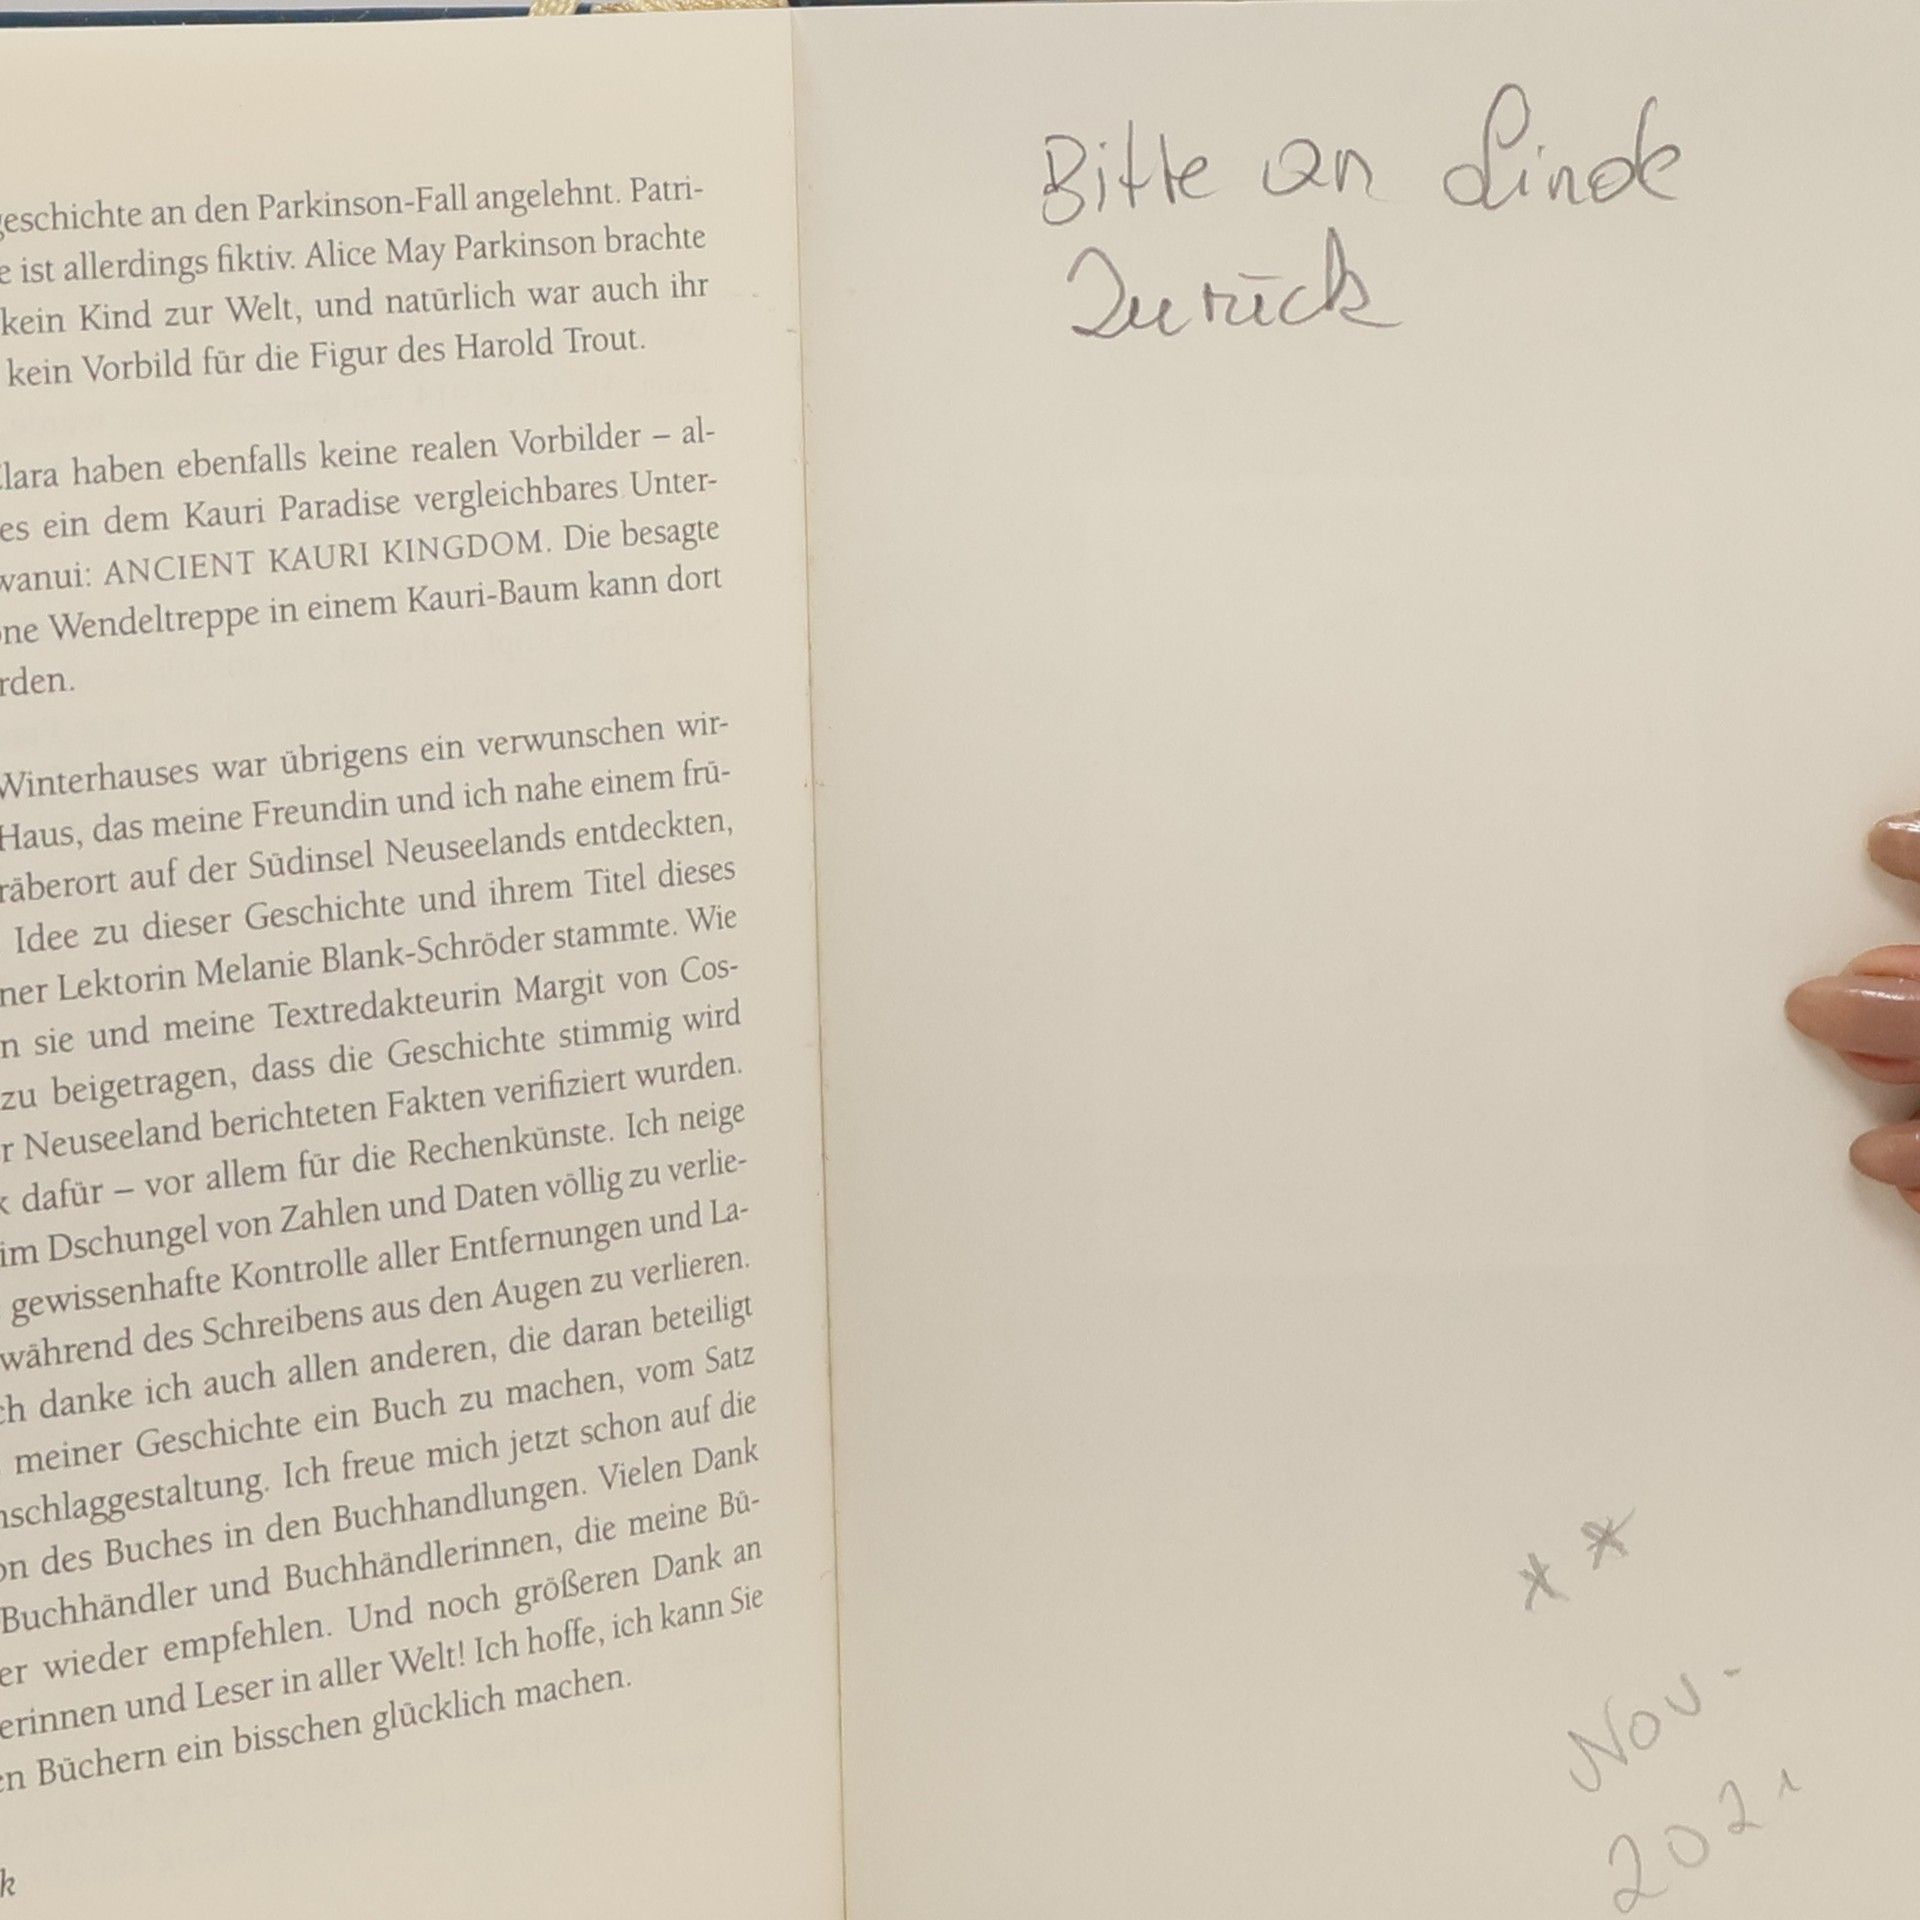 geschichte an den Parkinson-Fall angelehnt. Patri-
e ist allerdings fiktiv. Alice May Parkinson brachte
kein Kind zur Welt, und natürlich war auch ihr
kein Vorbild für die Figur des Harold Trout.
Clara haben ebenfalls keine realen Vorbilder – al-
es ein dem Kauri Paradise vergleichbares Unter-
wanui: ANCIENT KAURI KINGDOM. Die besagte
ne Wendeltreppe in einem Kauri-Baum kann dort
rden.
Winterhauses war übrigens ein verwunschen wir-
Haus, das meine Freundin und ich nahe einem frü-
räberort auf der Südinsel Neuseelands entdeckten,
Idee zu dieser Geschichte und ihrem Titel dieses
ner Lektorin Melanie Blank-Schröder stammte. Wie
n sie und meine Textredakteurin Margit von Cos-
zu beigetragen, dass die Geschichte stimmig wird
r Neuseeland berichteten Fakten verifiziert wurden.
k dafür – vor allem für die Rechenkünste. Ich neige
im Dschungel von Zahlen und Daten völlig zu verlie-
gewissenhafte Kontrolle aller Entfernungen und La-
während des Schreibens aus den Augen zu verlieren.
ch danke ich auch allen anderen, die daran beteiligt
meiner Geschichte ein Buch zu machen, vom Satz
nschlaggestaltung. Ich freue mich jetzt schon auf die
on des Buches in den Buchhandlungen. Vielen Dank
Buchhändler und Buchhändlerinnen, die meine Bü-
er wieder empfehlen. Und noch größeren Dank an
erinnen und Leser in aller Welt! Ich hoffe, ich kann Sie
en Büchern ein bisschen glücklich machen.
k
Bitte an Linde
Zurück
* *
Nov-
2021